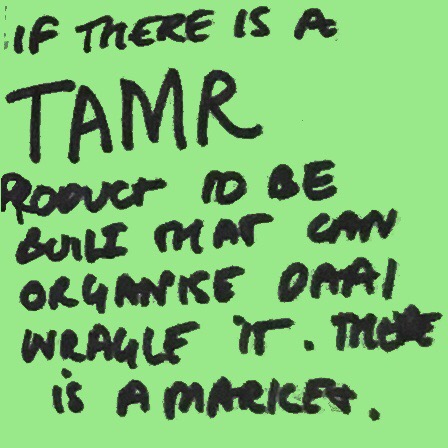 IF THERE IS A
TAMR
PRODUCT TO BE
BUILT THAT CAN
ORGANISE DATA
WRAGLE IT. THERE
IS A MARKET.